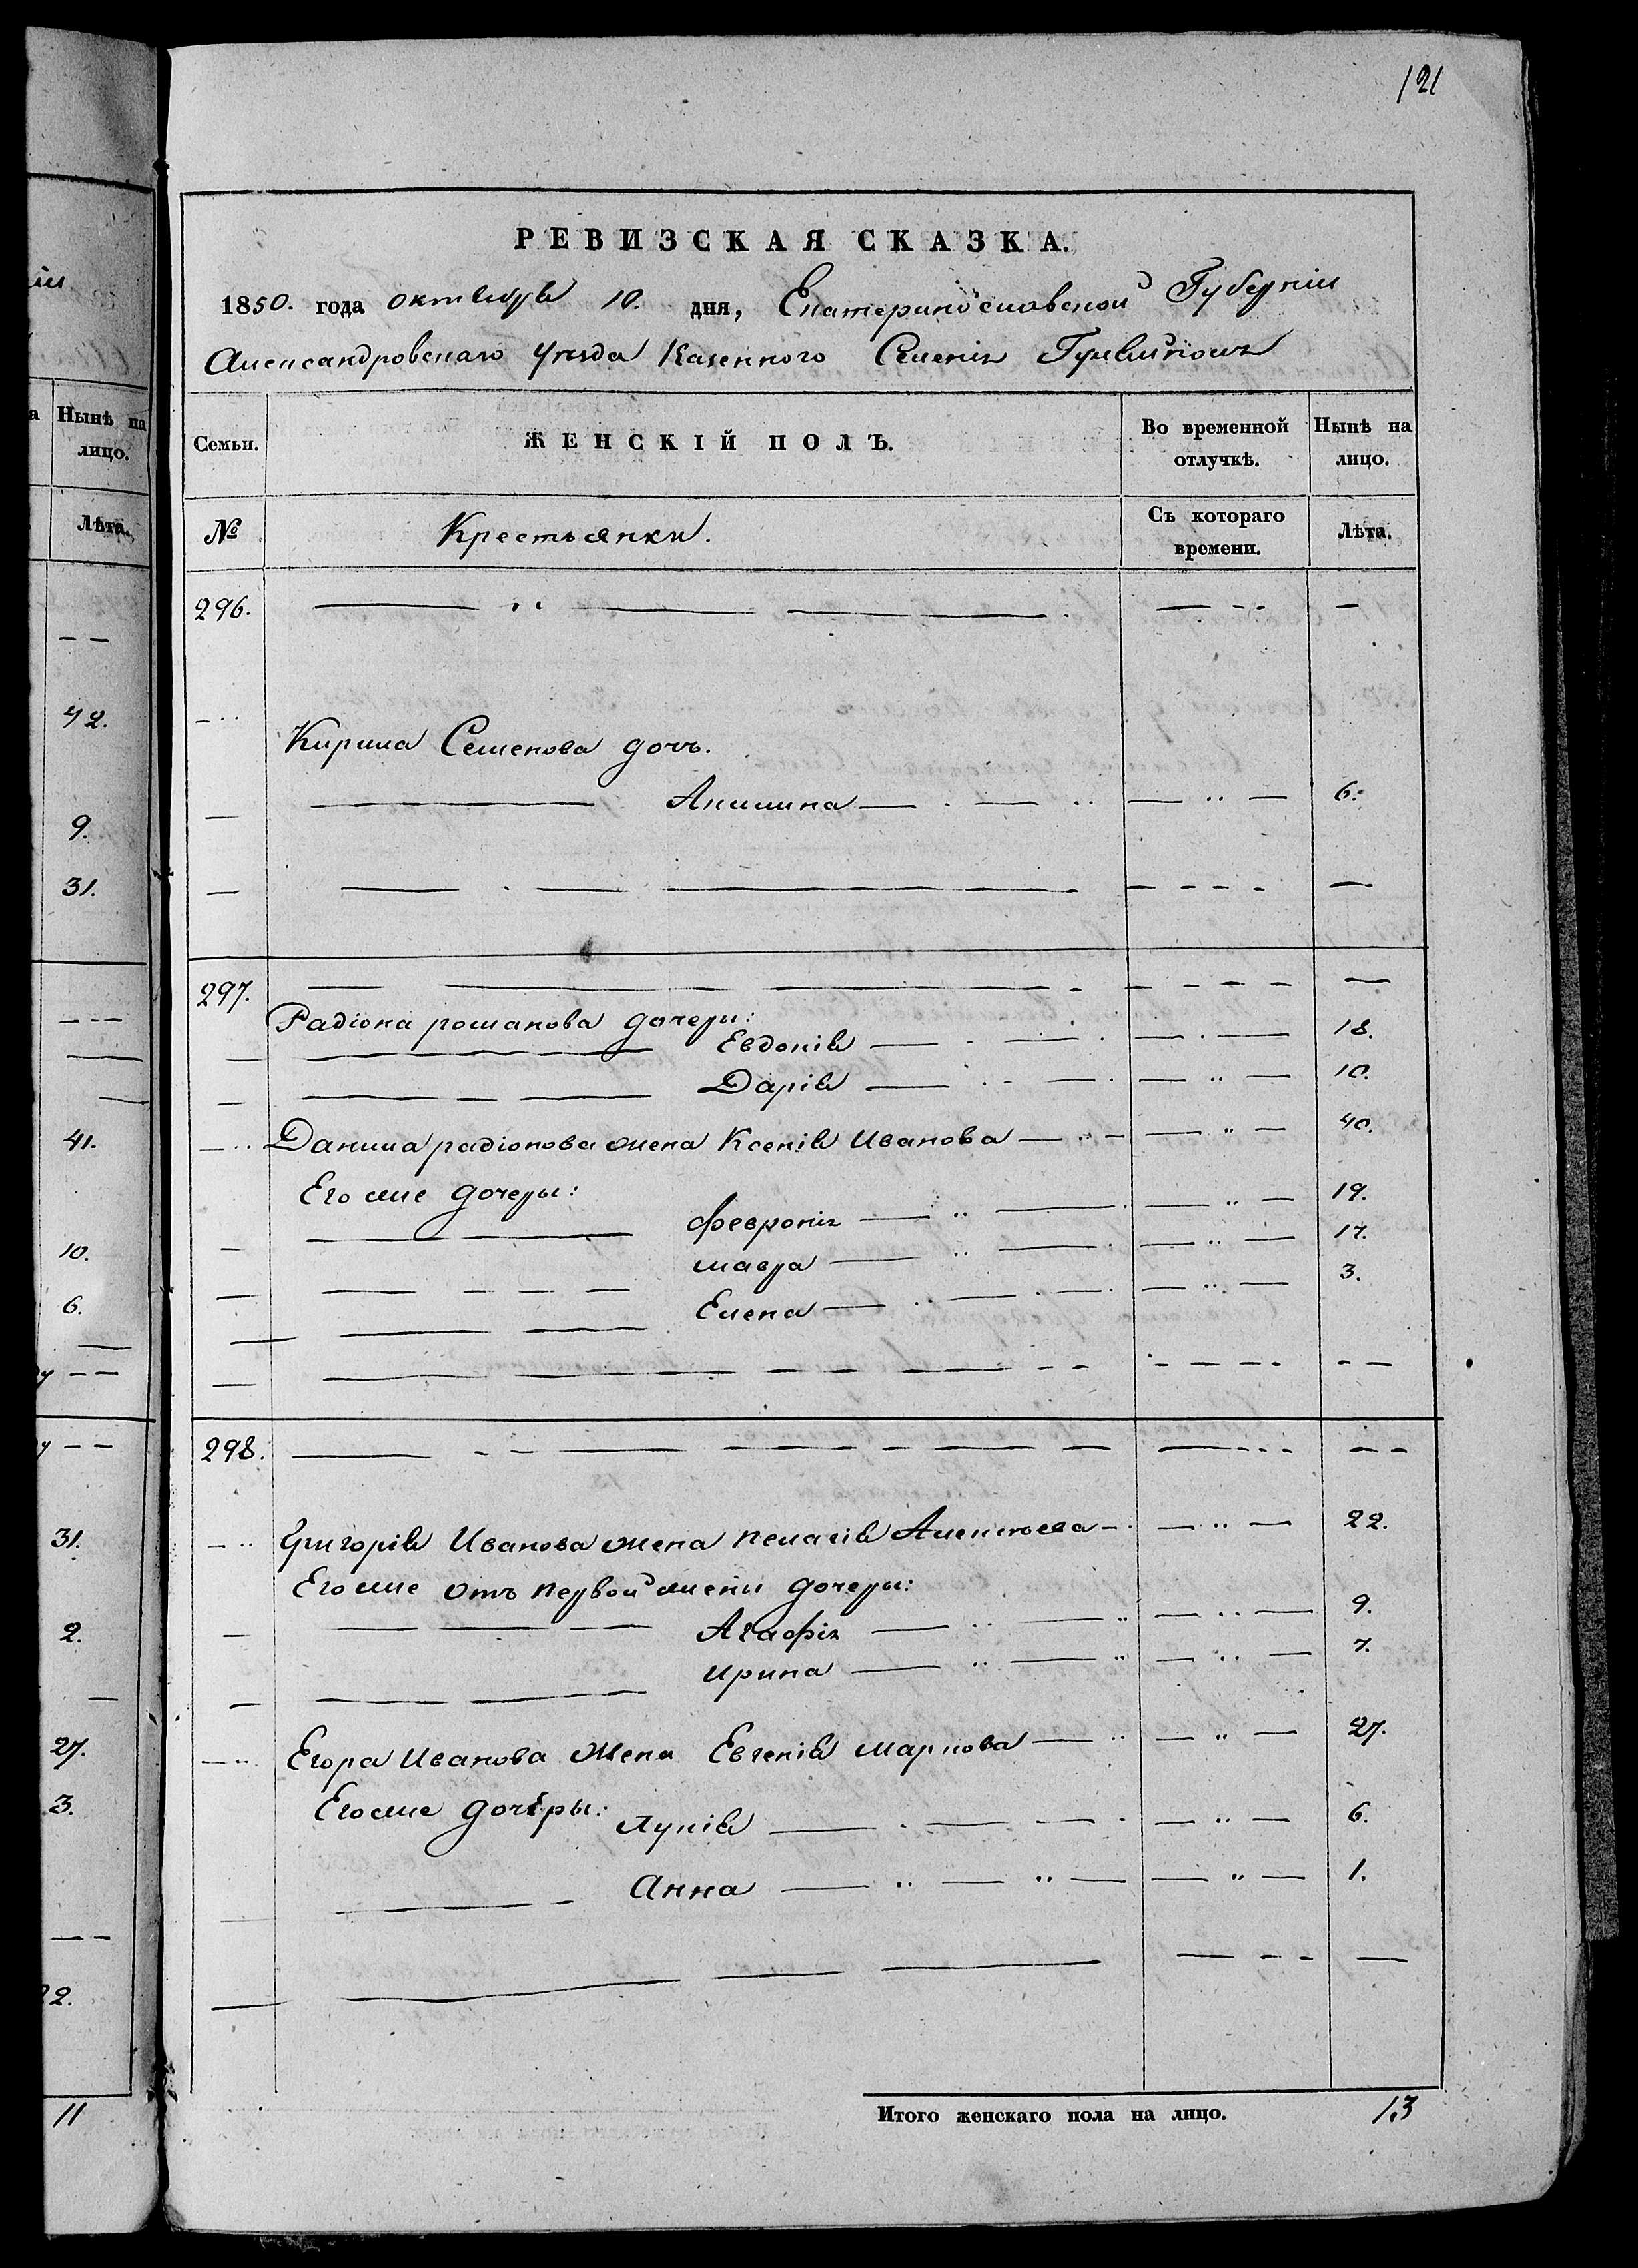 121
РЕВИЗСКАЯ СКАЗКА.
1850. года октября 10. дня, Екатеринославской Губерніи
Александровскаго уезда Казенного Селенія
Нынѣ на лицо.
Лѣта.
42.
9.
31.
41.
10.
6.
31.
2.
27.
3.
22.
11
Семьи. ЖЕНСКІЙ ПОЛЪ. Во временной отлучкѣ. Нынѣ на лицо.
№ Крестьянки. Съ котораго времени. Лѣта.
296.
Кирила Семенова дочь.
Акилина 6.
297.
Радіона романова дочери:
Евдокія 18.
Дарія 10.
Данила радіонова жена Ксенія Иванова 40.
Его же дочеры:
Февронія 19.
мавра 17.
Елена 3.
298.
Григорія Иванова жена пелагія Алексѣева 22.
Его же отъ первой жены дочеры:
Агафія 9.
ирина 7.
Егора Иванова жена Евгенія маркова 27.
Его же дочеры: Лукія 6.
Анна 1.
Итого женскаго пола на лицо. 13